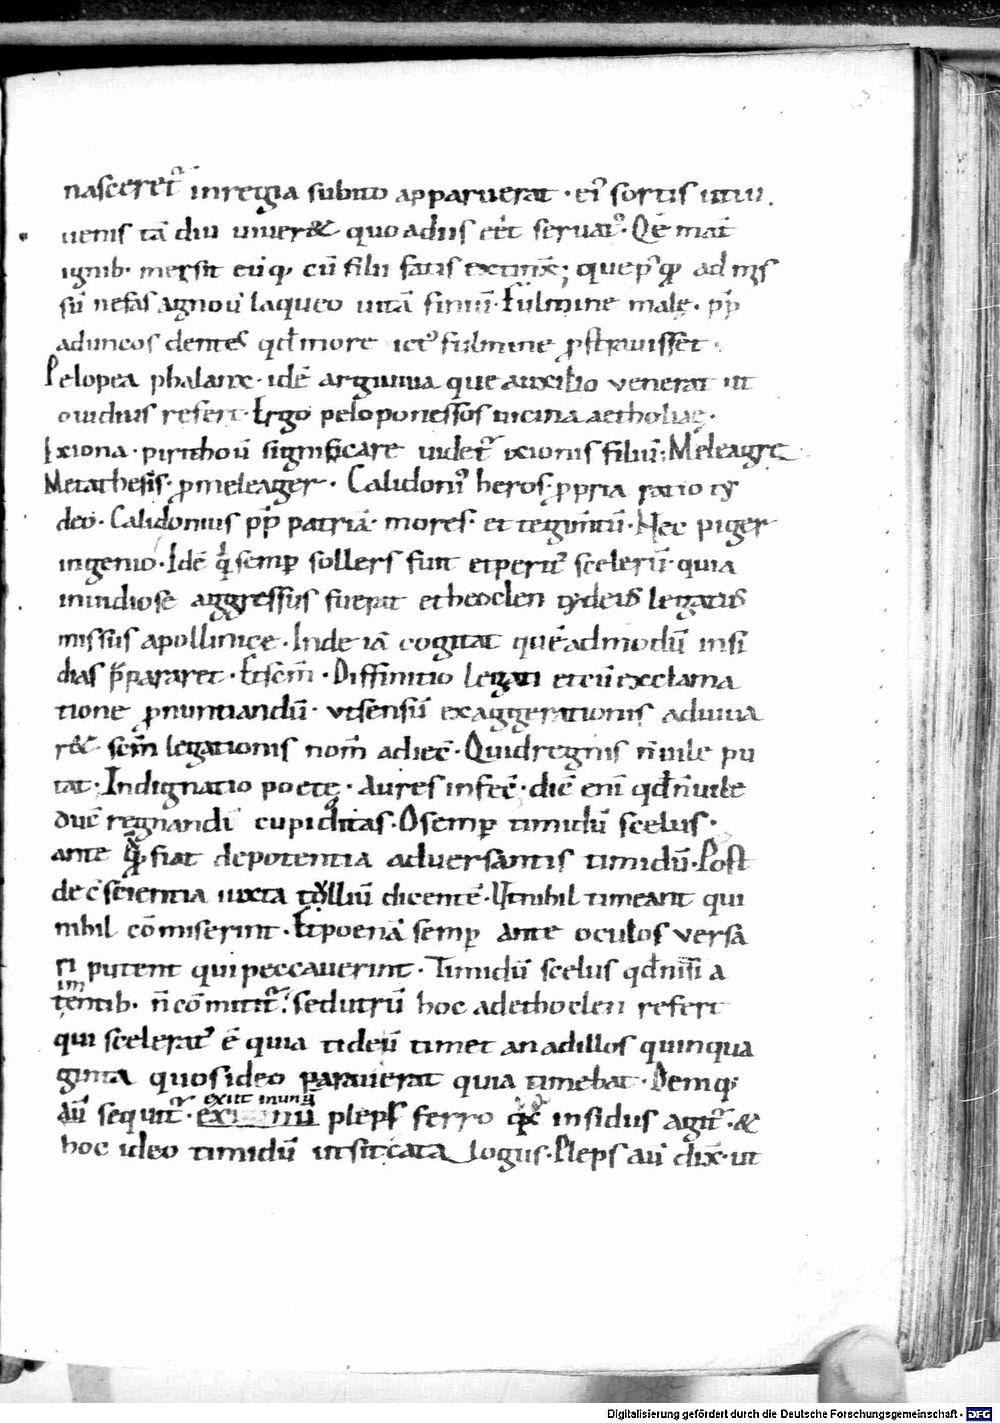 nasceret᷑ in regia subito apparuerat · ei᷒ sortis ut iu
uenis tā diu uiuer& quoadus eēt seruat᷒. Qē mat̄
ignib· mersit eūq, cū filii fatis extinx̄; que pꝰ qͣ ad mſ
sū nefas agnouᷓ laqueo uitā finiuͥ. Fulmine malę · ꝓp̄
aduncos dentes qd̄ more ict᷒ fulmine ꝓstrauisset ·
Pelopea phalanx · idē argiuua que auxilio venerat ut
ouidius refert. Ergo peloponessos uicina aetholiae ·
Ixiona · pirithoū significare uidet᷑ ixionis filiū; Meleagre
Metathesis · ꝓ meleager · Calidoni᷒ heros ꝓpria ratio ty
deo · Calidonius ꝓp̄ patriā · mores · et tegim̄tū · Nec piger
ingenio · Idē qͥ semp̲ sollers fuit et perit᷒ scelerū · quia
inuidiose aggressus fuerat etheoclen tydeus legatus
missus a pollinice · Inde iā cogitat quēadmodū insi
dias p̄pararet · Et sem̄ · Diffinitio legati et cū exclama
tione ꝓnuntiandū · vt sensū exaggerationis adiuua
r& · sem̄ legationis nom̄ adiec̄ · Quid regnis n̄ uile pu
tat · Indignatio poetę · Aures infec̄ · dic̄ eni qd̄ n̄ uile
duc̄ regnandi cupiditas · O semp̲ timidū scelus ·
ante qͣ fiat de potentia adversantis timidū · Post
de c̄scientia iuxta tulliū dicentē · Ut nihil timeant qui
nihil cōmiserint · Et poenā semp̲ ante oculos versa
ri putent qui peccauerint · Timidū scelus qd̄ nisi a
tim
tentib· n̄ cōmittit᷑. sed utrū hoc ad ethoclen refert
qui scelerat᷒ ē quia tideū timet an ad illos quinqua
ginta quos ideo parauerat quia timebat · Demq;
exiit inuniū
aū sequit᷑ · plebs ferro insidiis agit᷑ · &
hoc ideo timidū ut sit catalogus · Plebs aū dix̄ · ut
Digitalisierung gefördert durch die Deutsche Forschungsgemeinschaft - DFG